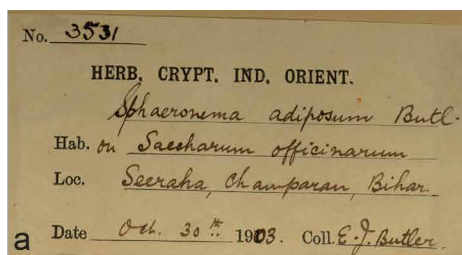 No. 3531
HERB. CRYPT. IND. ORIENT.
Sphaeronema adiposum Butl.
Hab. on Saccharum officinarum
Loc. Seeraha, Champaran, Bihar.
a Date Oct. 30th 1903. Coll. E. J. Butler.